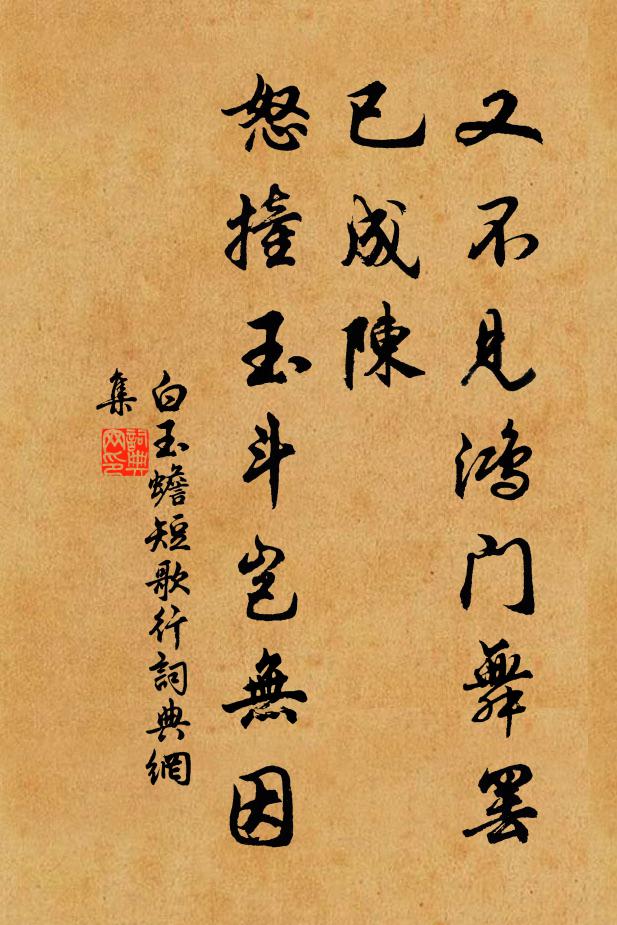 又不見鴻門舞罷
已成陳
怒撞玉斗豈無因
白玉蟾短歌行詞典網
集
詞典網印